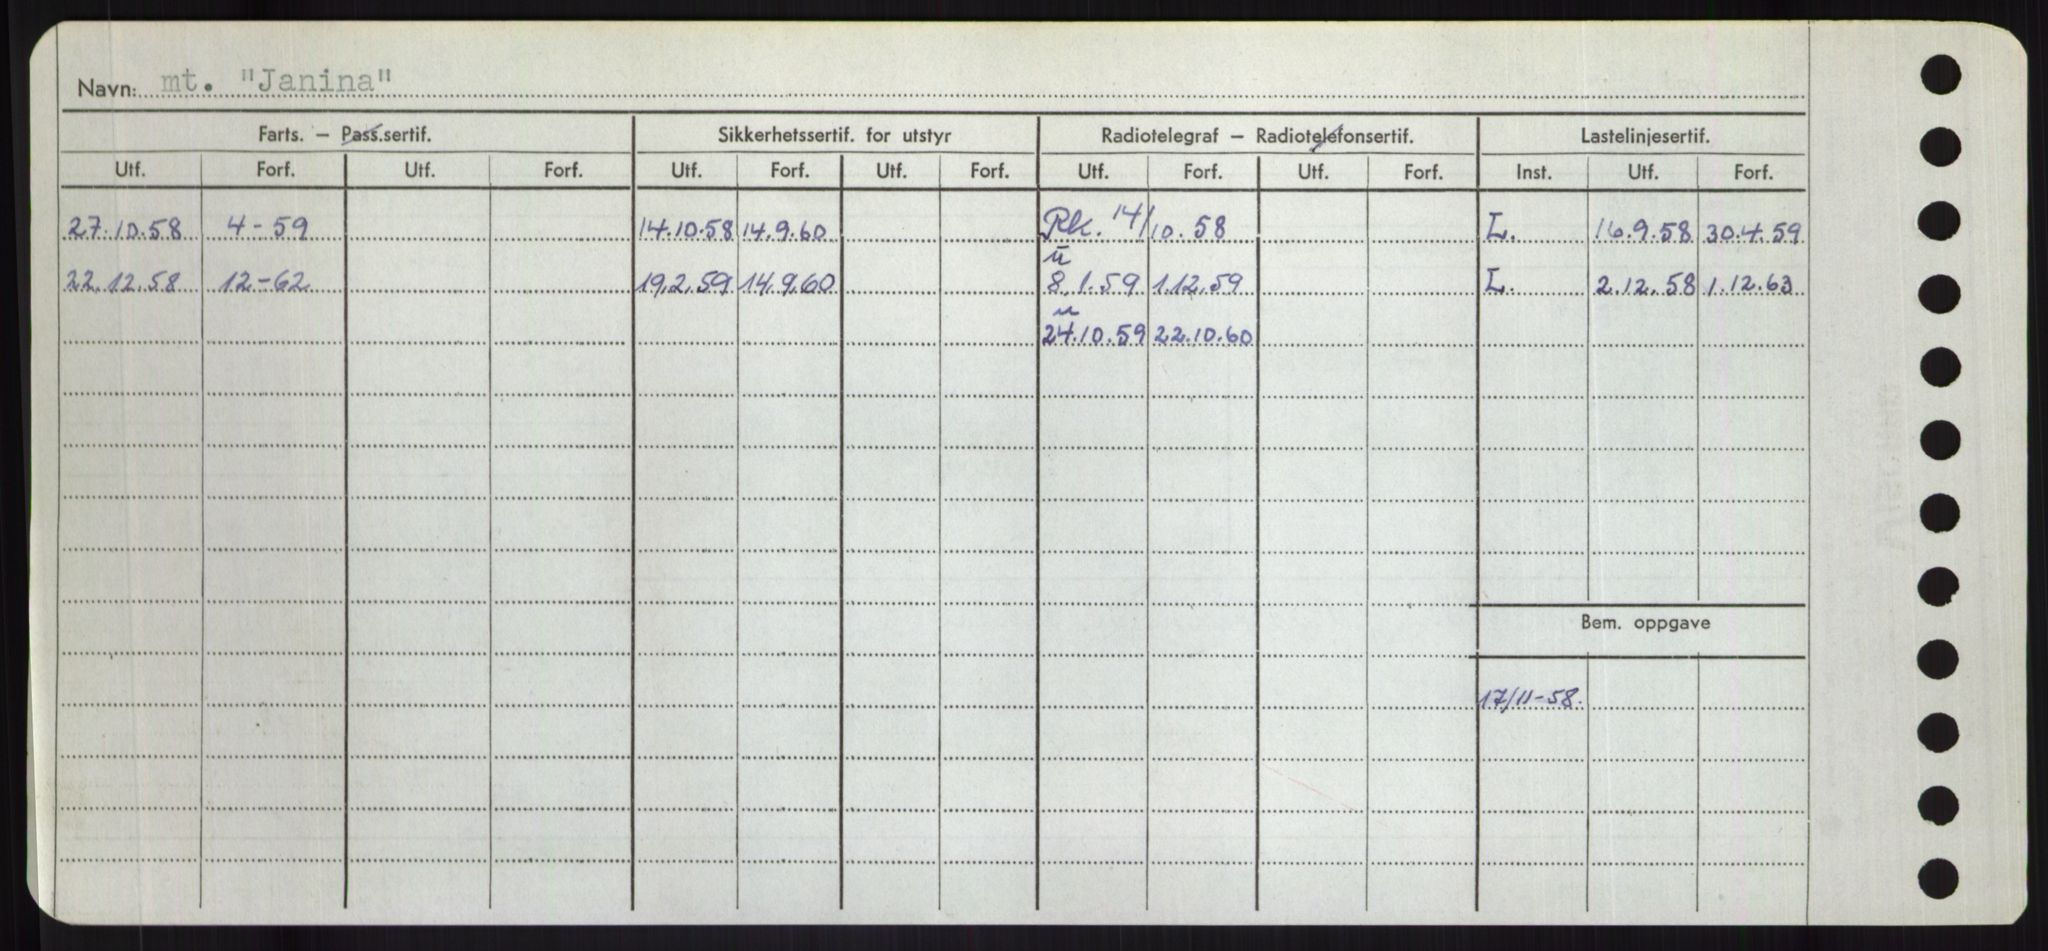 Navn: mt. "Janina"
Farts. — Pass.sertif. Sikkerhetssertif. for utstyr Radiotelegraf — Radiotelefonsertif. Lastelinjesertif.
Utf. Forf. Utf. Forf. Utf. Forf. Utf. Forf. Utf. Forf. Utf. Forf. Inst. Utf. Forf.
27.10.58 4-59 14.10.58 14.9.60 Rk. 14/10.58 L. 16.9.58 30.4.59
22.12.58 12-62 19.2.59 14.9.60 8.1.59 1.12.59 L. 2.12.58 1.12.63
24.10.59 22.10.60
Bem. oppgave
17/11-58.